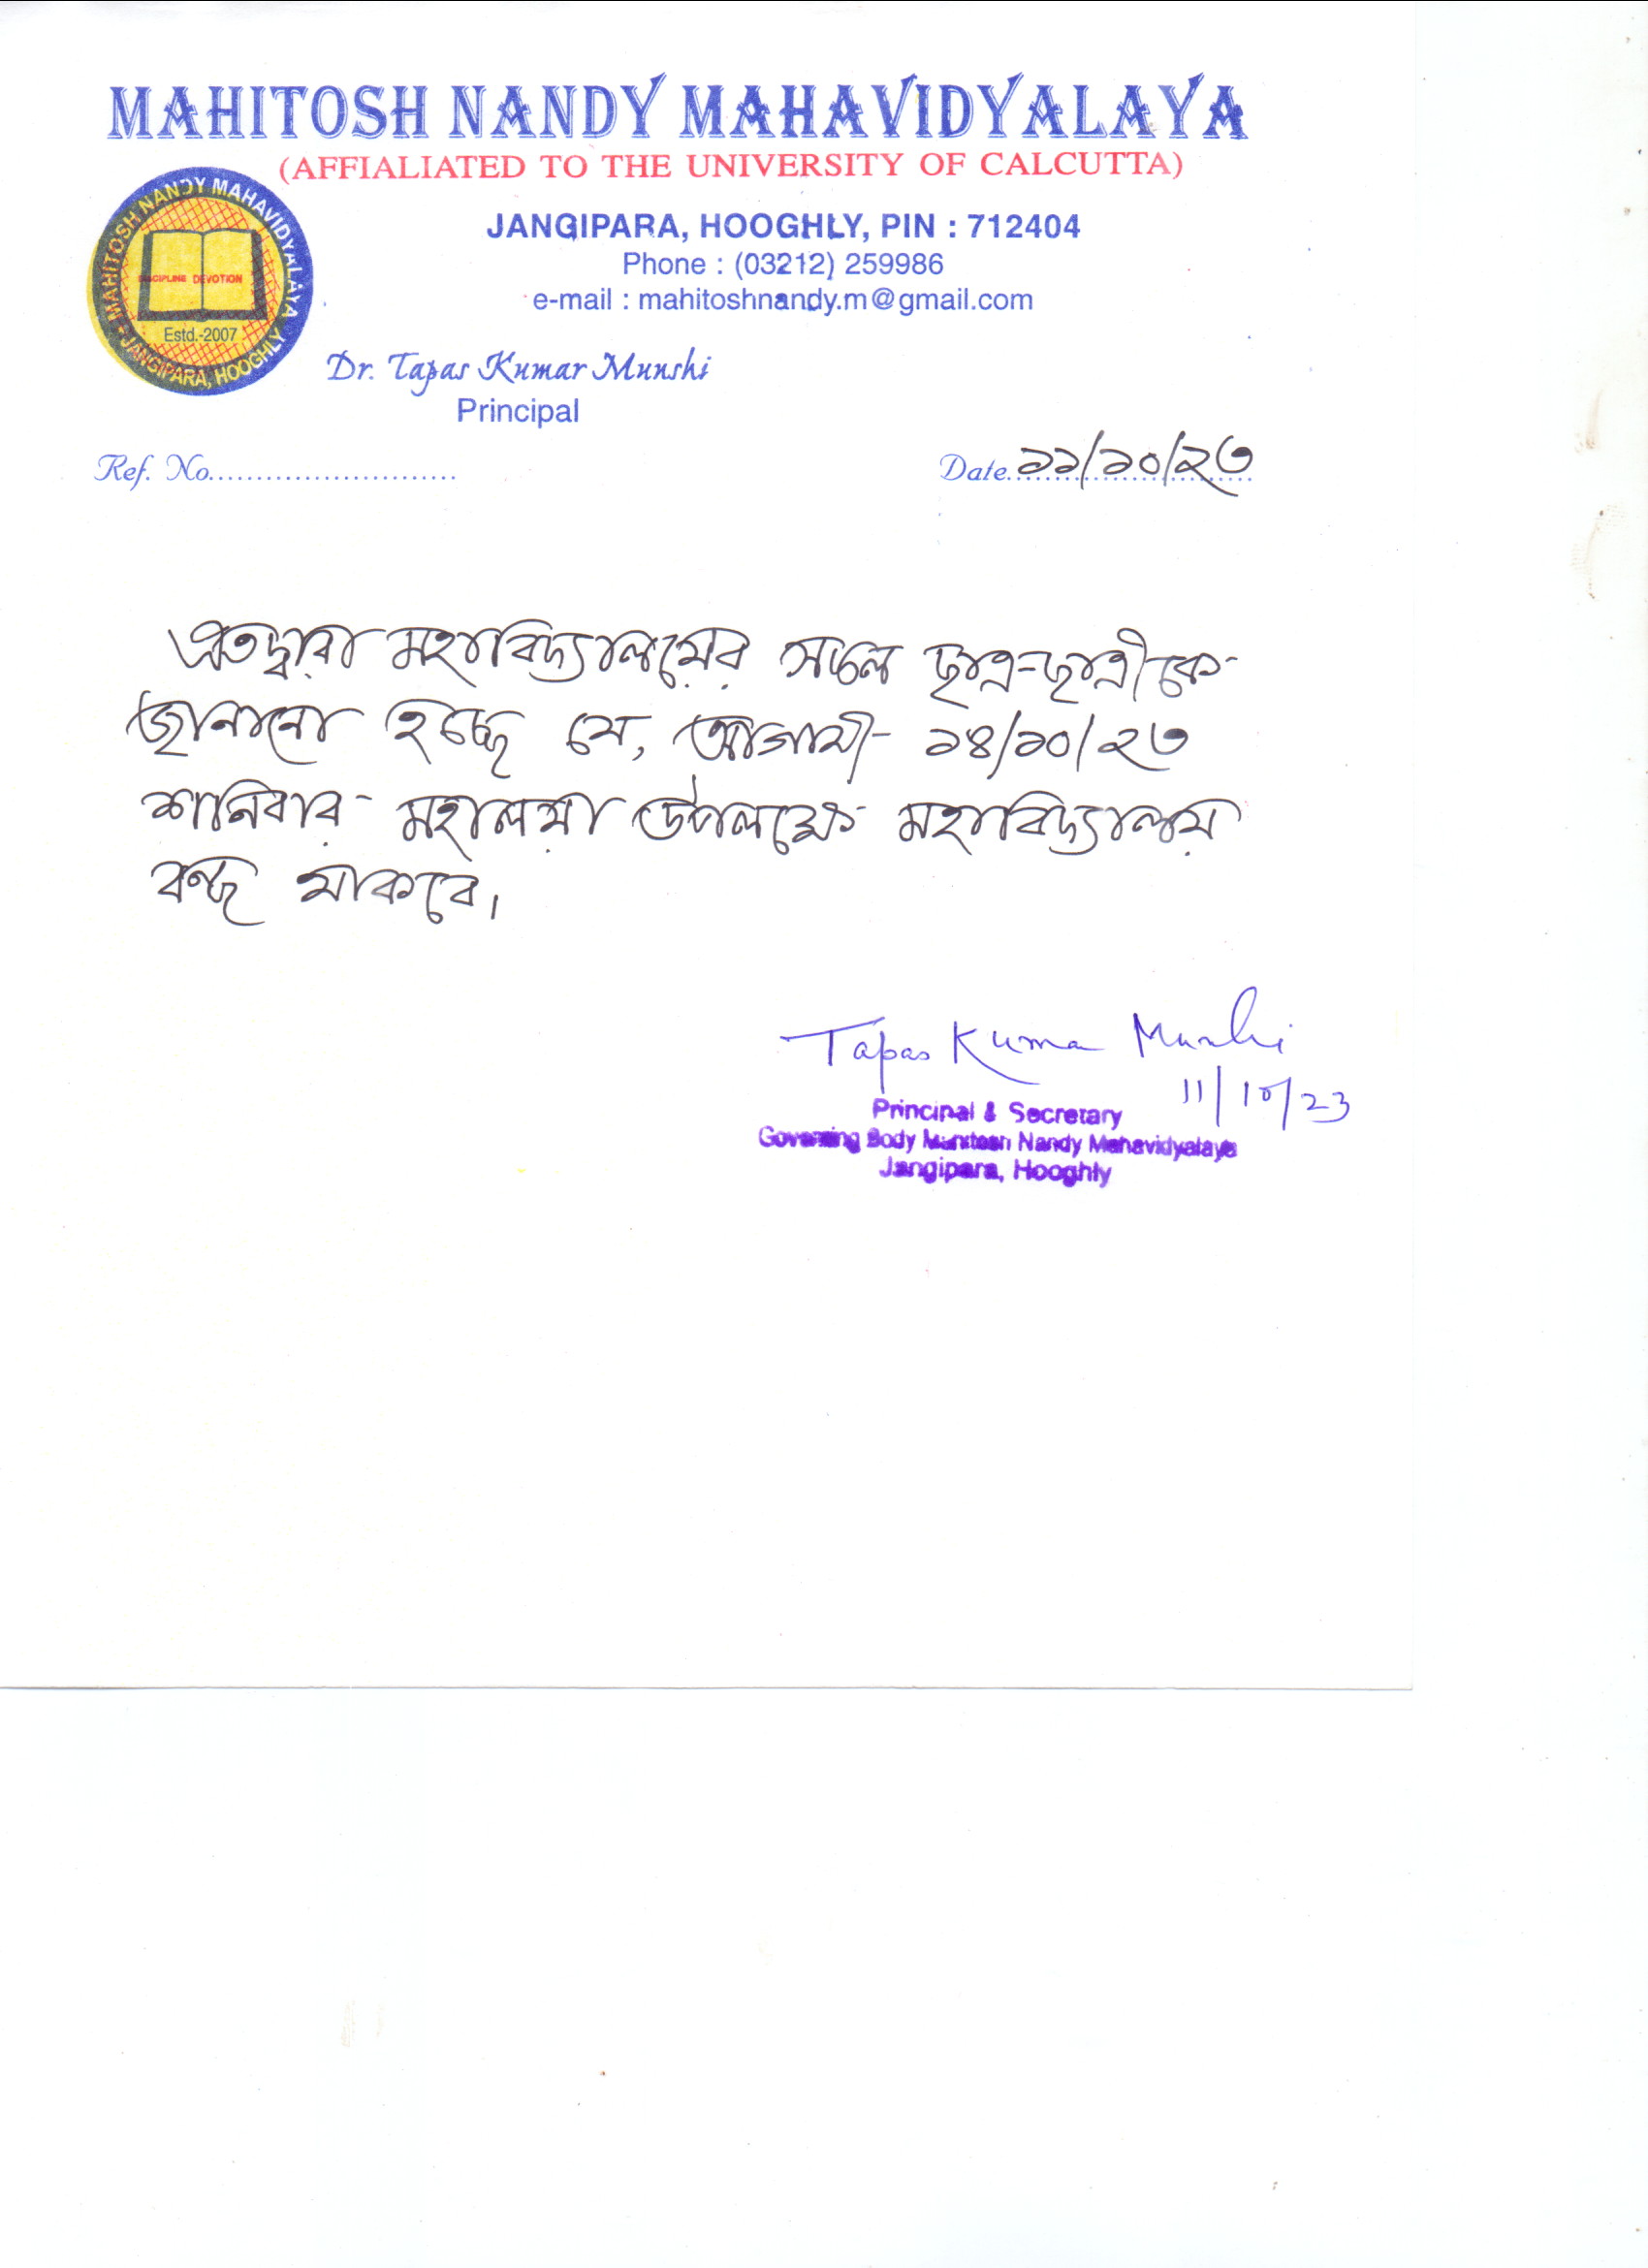 MAHITOSH NANDY MAHAVIDYALAYA
(AFFIALIATED TO THE UNIVERSITY OF CALCUTTA)
MAHITOSH NANDY MAHAVIDYALAYA
DISCIPLINE DEVOTION
Estd.-2007
JANGIPARA, HOOGHLY
JANGIPARA, HOOGHLY, PIN : 712404
Phone : (03212) 259986
e-mail : mahitoshnandy.m@gmail.com
Dr. Tapas Kumar Munshi
Principal
Ref. No..........................
Date..১১/১০/২৩
এতদ্বারা মহাবিদ্যালয়ের সকল ছাত্র-ছাত্রীকে
জানানো হচ্ছে যে, আগামী ১৪/১০/২৩
শনিবার মহালয়া উপলক্ষে মহাবিদ্যালয়
বন্ধ থাকবে।
Tapas Kumar Munshi
11/10/23
Principal & Secretary
Governing Body Mahitosh Nandy Mahavidyalaya
Jangipara, Hooghly